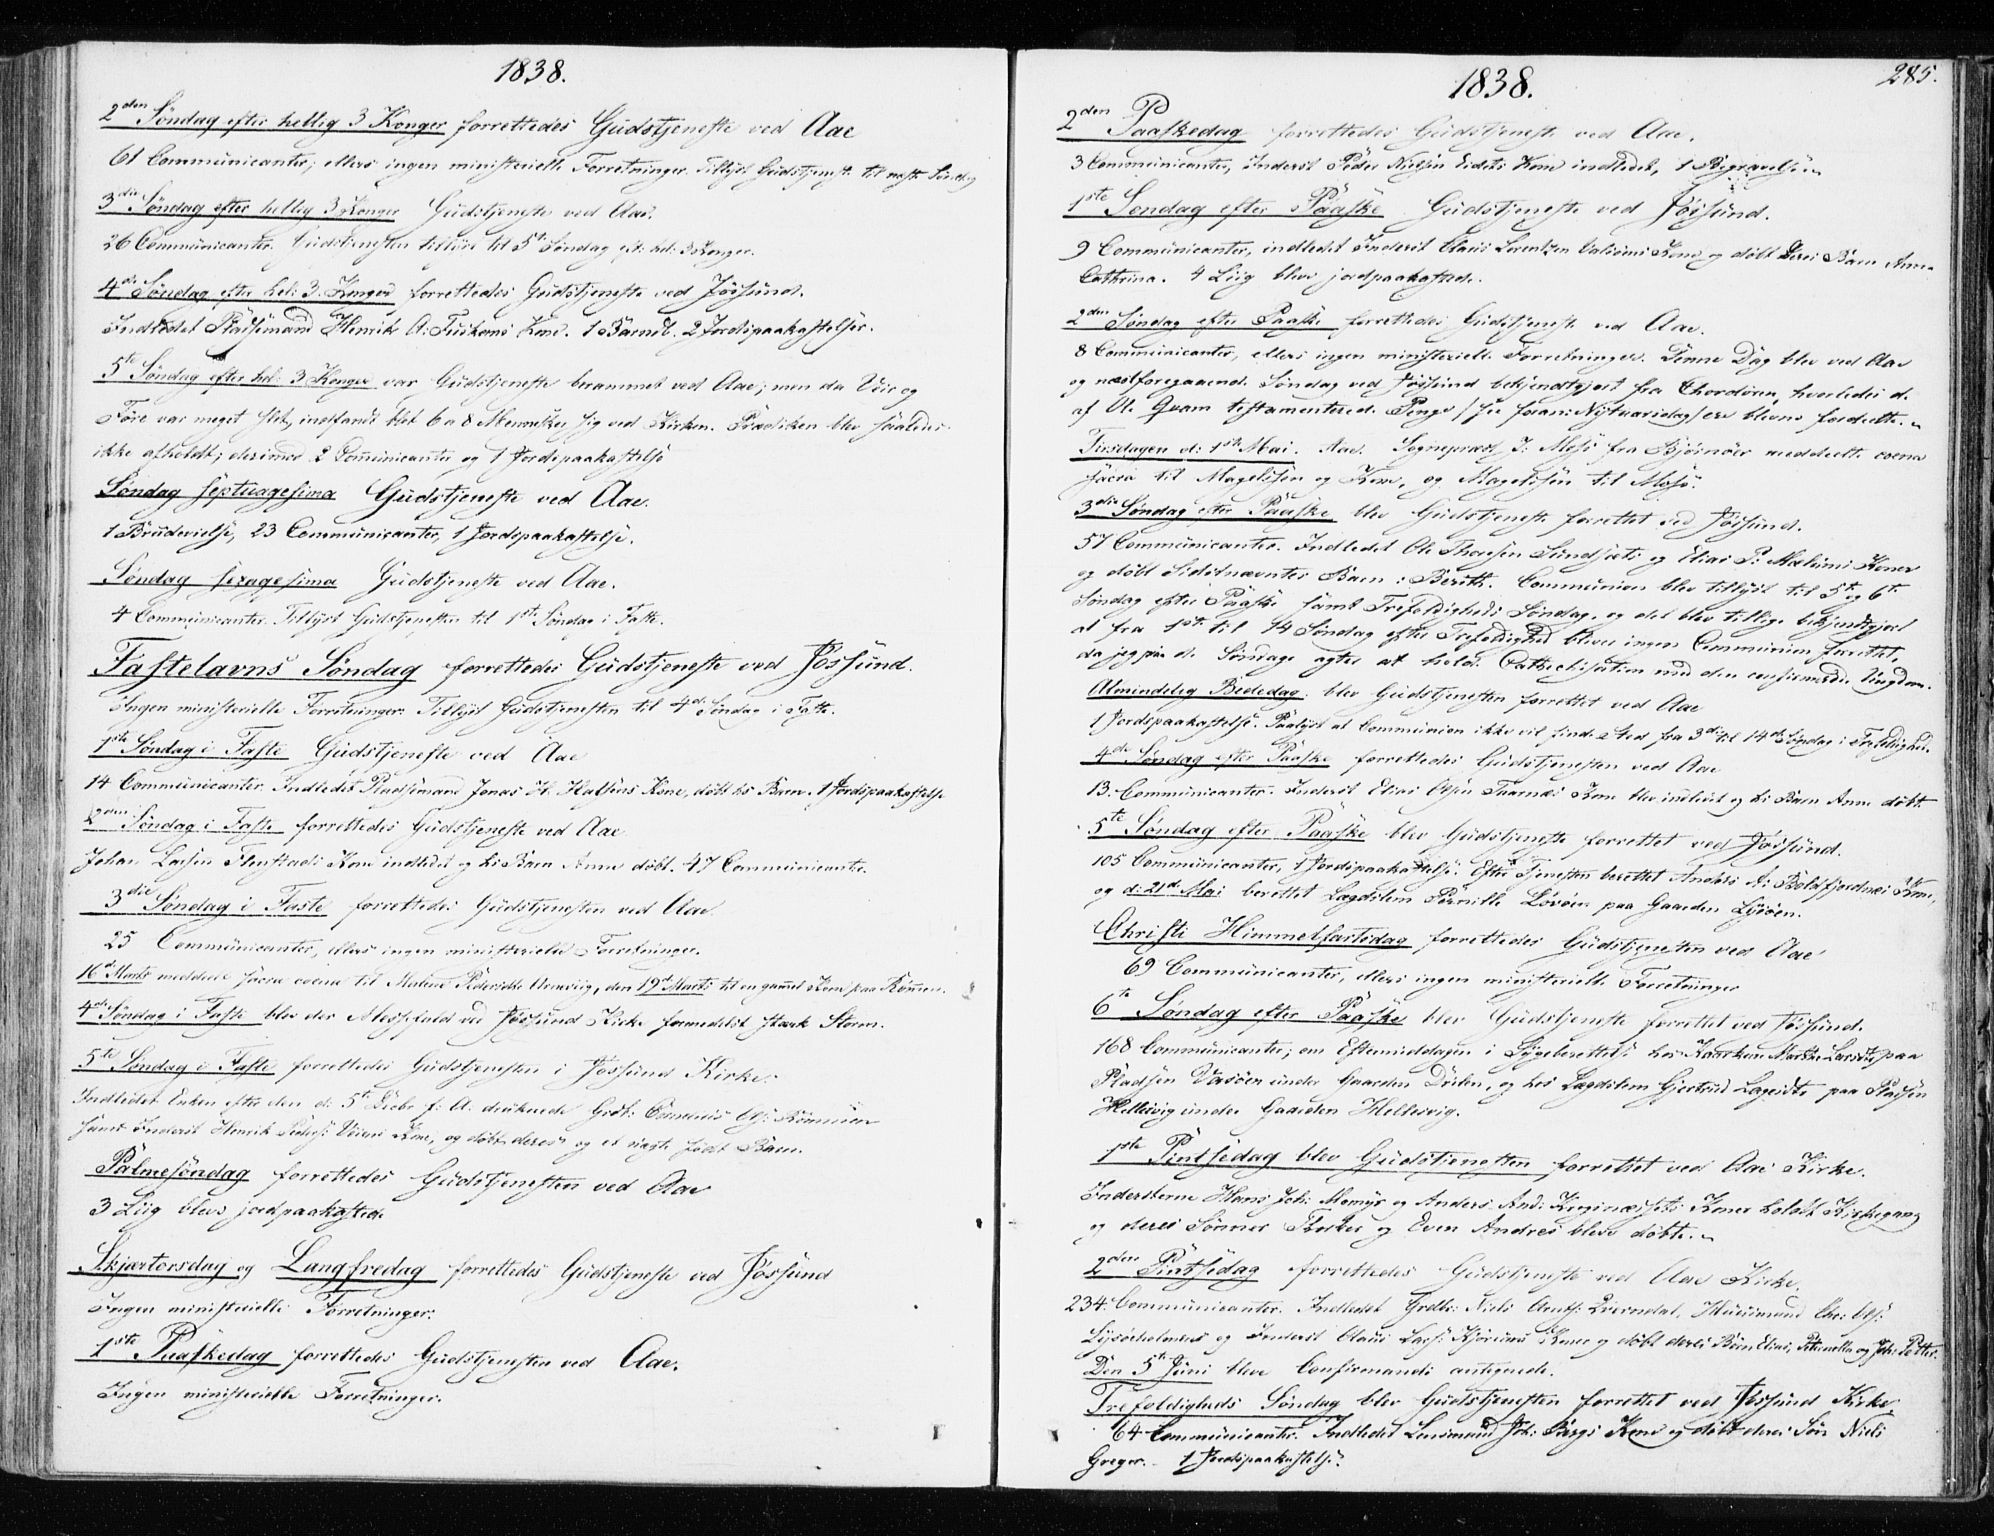 1838.
2den Søndag efter hellig 3 Konger forrettedes Gudstjeneste ved Aae
61 Communicanter; ellers ingen ministerielle Forretninger. Tillyst Gudstjeneste til næste Søndag
3die Søndag efter hellig 3 Konger Gudstjeneste ved Aae.
26 Communicanter. Gudstjenesten tillyst til 5te Søndag eft: hel: 3 Konger.
4de Søndag efter hel: 3 Konger forrettedes Gudstjeneste ved Jøssund.
Indledet Pladsmand Henrik A: Kone. 1 Barned. 2 Jordspaakastelser.
5te Søndag efter hel: 3 Konger var Gudstjeneste berammet ved Aae; men da Veir og
Føre var meget slet, indfandt blot 6 a 8 Mennesker sig ved Kirken. Prædiken blev saaledes
ikke afholdt; derimod 2 Communicanter og 1 Jordspaakastelse
Søndag septuagesima Gudstjeneste ved Aae.
1 Brudevielse, 23 Communicanter, 1 Jordspaakastelse.
Søndag sexagesima Gudstjeneste ved Aae.
4 Communicanter. Tillyst Gudstjenesten til 1ste Søndag i Faste.
Fastelavns Søndag forrettedes Gudstjeneste ved Jøssund.
Ingen ministerielle Forretninger. Tillyst Gudstjenesten til 4de Søndag i Faste.
1ste Søndag i Faste Gudstjeneste ved Aae
14 Communicanter. Indledet Pladsmand Jonas H. Halsens Kone, døbt hs Barn. 1 Jordspaakastelse
2den Søndag i Faste forrettedes Gudstjeneste ved Aae.
Johan Larsen Kone indledet og hs Barn Anne døbt. 47 Communicanter.
3die Søndag i Faste forrettedes Gudstjenesten ved Aae.
25 Communicanter, ellers ingen ministerielle Forretninger.
16de Marts meddeelt sacra coena til Malene Pedersdtr Arnevig, den 19de Marts til en gammel Kone paa
4de Søndag i Faste blev der Messefald ved Jøssund Kirke formedelst stærk Storm.
5te Søndag i Faste forrettedes Gudstjenesten i Jøssund Kirke.
Indledet Enken efter den d: 5te f: A: druknede Ols:
samt Inderst Henrik Peders: Kone, og døbt deres og et uægte født Barn.
Palmesøndag forrettedes Gudstjenesten ved Aae
3 Liig blev jordpaakastede
Skjærtorsdag og Langfredag forrettedes Gudstjeneste ved Jøssund
Ingen ministerielle Forretninger.
1ste Paaskedag forrettedes Gudstjenesten ved Aae.
Ingen ministerielle Forretninger.
1838.
285.
2den Paaskedag forrettedes Gudstjeneste ved Aae.
3 Communicanter, Inderst Peder Nielsen Eidets Kone indledet, 1 Begravelse
1ste Søndag efter Paaske Gudstjeneste ved Jøssund.
9 Communicanter, indledet Inderst Claus Lorentzen Kone og døbt deres Barn Anne
Cathrina. 4 Liig blev jordpaakastede.
2den Søndag efter Paaske forrettedes Gudstjeneste ved Aae.
8 Communicanter, ellers ingen ministerielle Forretninger. Denne Dag blev ved Aae
og næstforegaaende Søndag ved Jøssund bekjendtgjort fra Chordøren, hvorledes de
af Ole Qvam testamenterede Penge / foran: Nytaarsdag / ere blevne fordeelte.
Tirsdagen d: 1ste Mai. Aae. Sognepræst J: fra Bjørnøer meddeelte coena
sacra til Magelssen og Kone, og Magelssen til
3die Søndag efter Paaske blev Gudstjeneste forrettet ved Jøssund.
57 Communicanter. Indledet Ole Thoresen og Elias P: Koner
og døbt Sidstnævntes Barn: Berith. Communion blev tillyst til 5te og 6te
Søndag efter Paaske samt Trefoldigheds Søndag, og det blev tillige bekjendtgjort
at fra 1ste til 14 Søndag efter Trefoldighed bliver ingen Communion forrettet,
da jeg paa de Søndage agter at holde Cathechisation med den confirmerede Ungdom.
Almindelig Bededag blev Gudstjenesten forrettet ved Aae
1 Jordspaakastelse. Paalyst at Communion ikke vil finde Sted fra 3die til 14de Søndag i Trefoldighed.
4de Søndag efter Paaske forrettedes Gudstjenesten ved Aae
13 Communicanter. Inderst Elias Olsen Kone blev indledet og hs Barn Anne døbt
5te Søndag efter Paaske blev Gudstjeneste forrettet ved Jøssund.
105 Communicanter, 1 Jordspaakastelse. Efter Tjenesten berettet Anders A: Kone,
og d: 21de Mai berettet Lægdslem Pernille Løvøen paa Gaarden Lysøen.
Christi Himmelfartsdag forrettedes Gudstjenesten ved Aae
69 Communicanter, ellers ingen ministerielle Forretninger
6te Søndag efter Paaske blev Gudstjeneste forrettet ved Jøssund.
168 Communicanter; om Eftermiddagen i Sygeberettelse hos Marthe Larsdtr paa
Pladsen under Gaarden og hos Lægdslem Gjertrud paa Pladsen
Hellesvig under Gaarden Hellesvig.
1ste Pintsedag blev Gudstjenesten forrettet ved Aae Kirke.
Indersterne Hans Joh: Momyr og Anders And: Koner holdt Kirkegang
og deres Sønner og Even Andreas bleve døbte.
2den Pintsedag forrettedes Gudstjeneste ved Aae Kirke.
234 Communicanter. Indledet Grdbr: Niels Arnts: Qverndal, Huusmand Chr: Ols:
Lysøeholmens og Inderst Claus Lars: Koner og døbt deres Børn Elias, Petronella og Joh: Petter.
Den 5te Juni bleve Confirmandi antegnede.
Trefoldigheds Søndag blev Gudstjenesten forrettet ved Jøssund Kirke.
64 Communicanter. Indledet Lensmand Joh: Bergs Kone og døbt deres Søn Niels
Greger. 1 Jordspaakastelse.